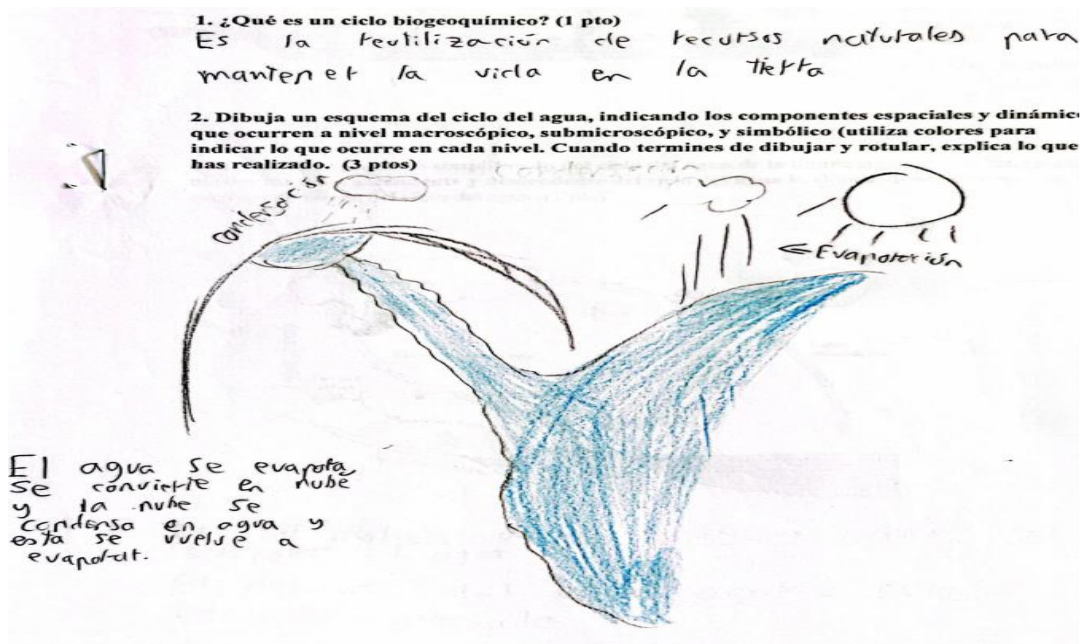 1. ¿Qué es un ciclo biogeoquímico? (1 pto)
Es la reutilización de recursos naturales para
mantener la vida en la tierra
2. Dibuja un esquema del ciclo del agua, indicando los componentes espaciales y dinámic
que ocurren a nivel macroscópico, submicroscópico, y simbólico (utiliza colores para
indicar lo que ocurre en cada nivel. Cuando termines de dibujar y rotular, explica lo que
has realizado. (3 ptos)
condensación
← Evaporación
El agua se evapora
se convierte en nube
y la nube se
condensa en agua y
esta se vuelve a
evaporar.